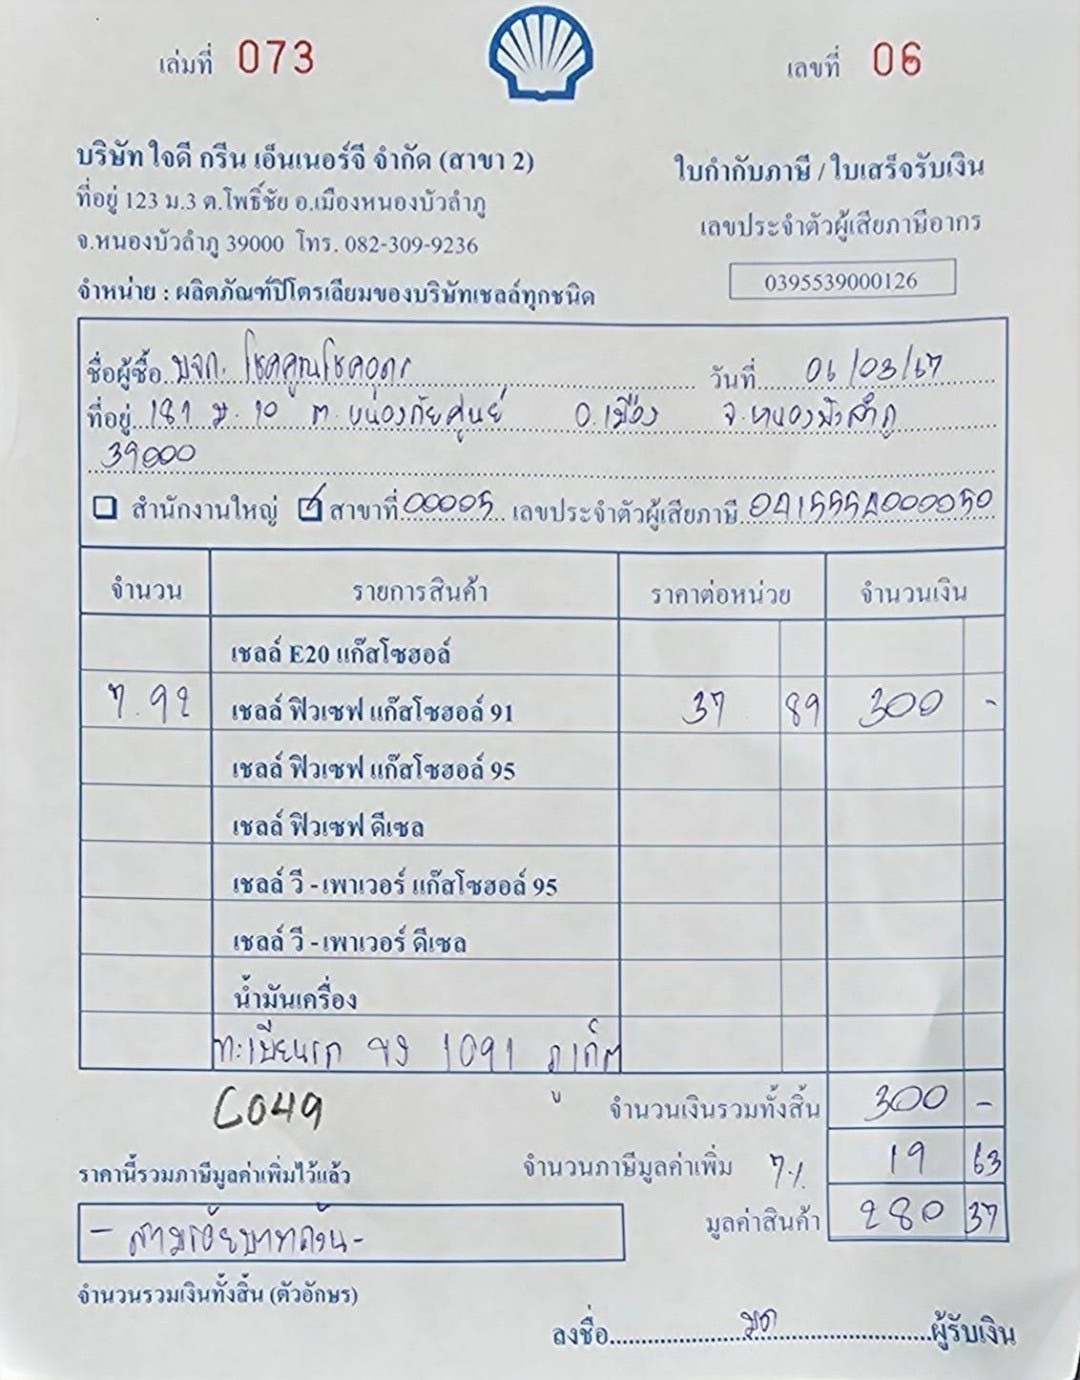 เล่มที่ 073
เลขที่ 06
บริษัท ใจดี กรีน เอ็นเนอร์จี จำกัด (สาขา 2)
ที่อยู่ 123 ม.3 ต.โพธิ์ชัย อ.เมืองหนองบัวลำภู
จ.หนองบัวลำภู 39000 โทร. 082-309-9236
จำหน่าย : ผลิตภัณฑ์ปิโตรเลียมของบริษัทเชลล์ทุกชนิด
ใบกำกับภาษี / ใบเสร็จรับเงิน
เลขประจำตัวผู้เสียภาษีอากร
0395539000126
ชื่อผู้ซื้อ บจก. โชคคูณโชคอุดร วันที่ 06/03/67
ที่อยู่ 181 ม.10 ต.หนองภัยศูนย์ อ.เมือง จ.หนองบัวลำภู
39000
สำนักงานใหญ่ สาขาที่ 00005 เลขประจำตัวผู้เสียภาษี
จำนวน รายการสินค้า ราคาต่อหน่วย จำนวนเงิน
เชลล์ E20 แก๊สโซฮอล์
7.92 เชลล์ ฟิวเซฟ แก๊สโซฮอล์ 91 37 89 300 -
เชลล์ ฟิวเซฟ แก๊สโซฮอล์ 95
เชลล์ ฟิวเซฟ ดีเซล
เชลล์ วี - เพาเวอร์ แก๊สโซฮอล์ 95
เชลล์ วี - เพาเวอร์ ดีเซล
น้ำมันเครื่อง
ทะเบียนรถ 1091 ภูเก็ต
C049
จำนวนเงินรวมทั้งสิ้น 300 -
ราคานี้รวมภาษีมูลค่าเพิ่มไว้แล้ว
จำนวนภาษีมูลค่าเพิ่ม 7% 19 63
มูลค่าสินค้า 280 37
- สามร้อยบาทถ้วน -
จำนวนรวมเงินทั้งสิ้น (ตัวอักษร)
ลงชื่อ ผู้รับเงิน